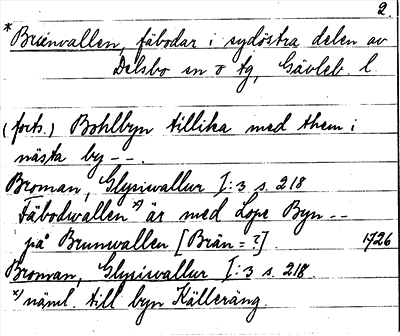 2.
* Brunvallen, fäbodar i sydöstra delen av
Delsbo sn o tg, Gävleb. l.
(forts.) Bohlbyn tillika med them i
nästa by - - .
Broman, Glysisvallur I:3 s. 218
Fäbodwallen x) är med Lope Byn - -
på Brunwallen [Brän = ?]. 1726
Broman, Glysisvallur I:3 s. 218.
x) näml. till byn Källeräng.